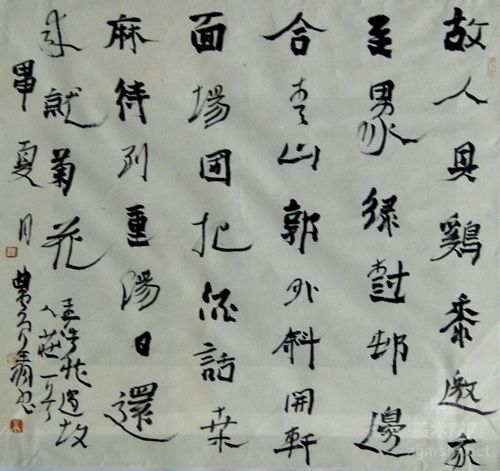 故人具鷄黍邀我
至田家綠樹邨邊
合青山郭外斜開軒
面場圃把酒話桑
麻待到重陽日還
來就菊花
孟浩然過故
人莊一首
夏月